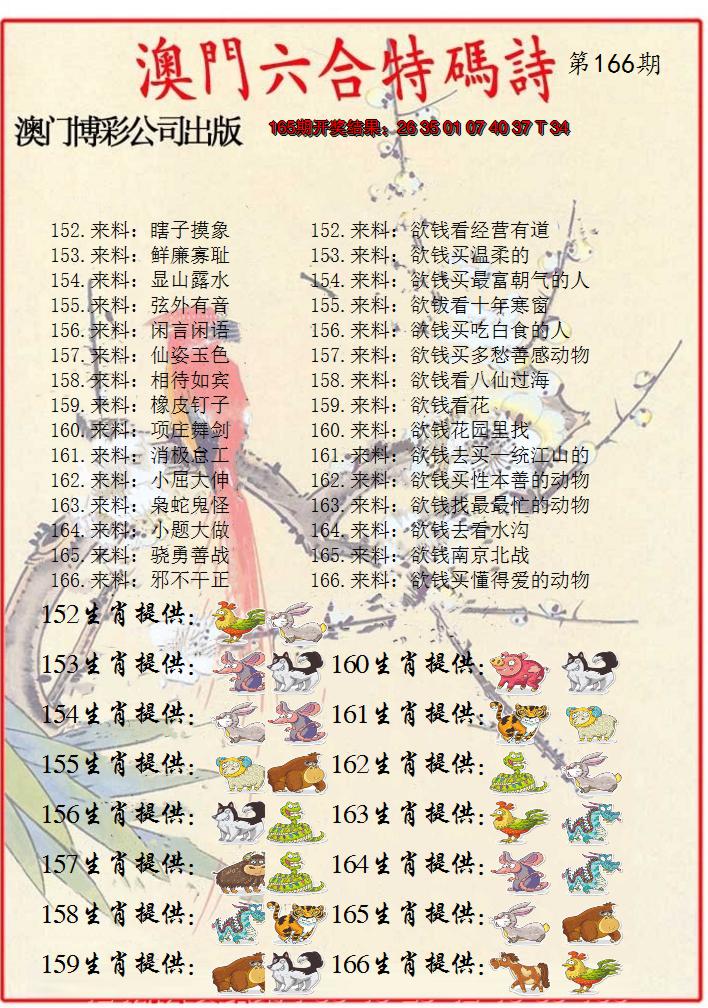 澳門六合特碼詩 第166期
澳门博彩公司出版 165期开奖结果：26 35 01 07 40 37 T 34
152.来料：瞎子摸象 152.来料：欲钱看经营有道
153.来料：鲜廉寡耻 153.来料：欲钱买温柔的
154.来料：显山露水 154.来料：欲钱买最富朝气的人
155.来料：弦外有音 155.来料：欲钱看十年寒窗
156.来料：闲言闲语 156.来料：欲钱买吃白食的人
157.来料：仙姿玉色 157.来料：欲钱买多愁善感动物
158.来料：相待如宾 158.来料：欲钱看八仙过海
159.来料：橡皮钉子 159.来料：欲钱看花
160.来料：项庄舞剑 160.来料：欲钱花园里找
161.来料：消极怠工 161.来料：欲钱去买一统江山的
162.来料：小屈大伸 162.来料：欲钱买性本善的动物
163.来料：枭蛇鬼怪 163.来料：欲钱找最最忙的动物
164.来料：小题大做 164.来料：欲钱去看水沟
165.来料：骁勇善战 165.来料：欲钱南京北战
166.来料：邪不干正 166.来料：欲钱买懂得爱的动物
152生肖提供：
153生肖提供： 160生肖提供：
154生肖提供： 161生肖提供：
155生肖提供： 162生肖提供：
156生肖提供： 163生肖提供：
157生肖提供： 164生肖提供：
158生肖提供： 165生肖提供：
159生肖提供： 166生肖提供：